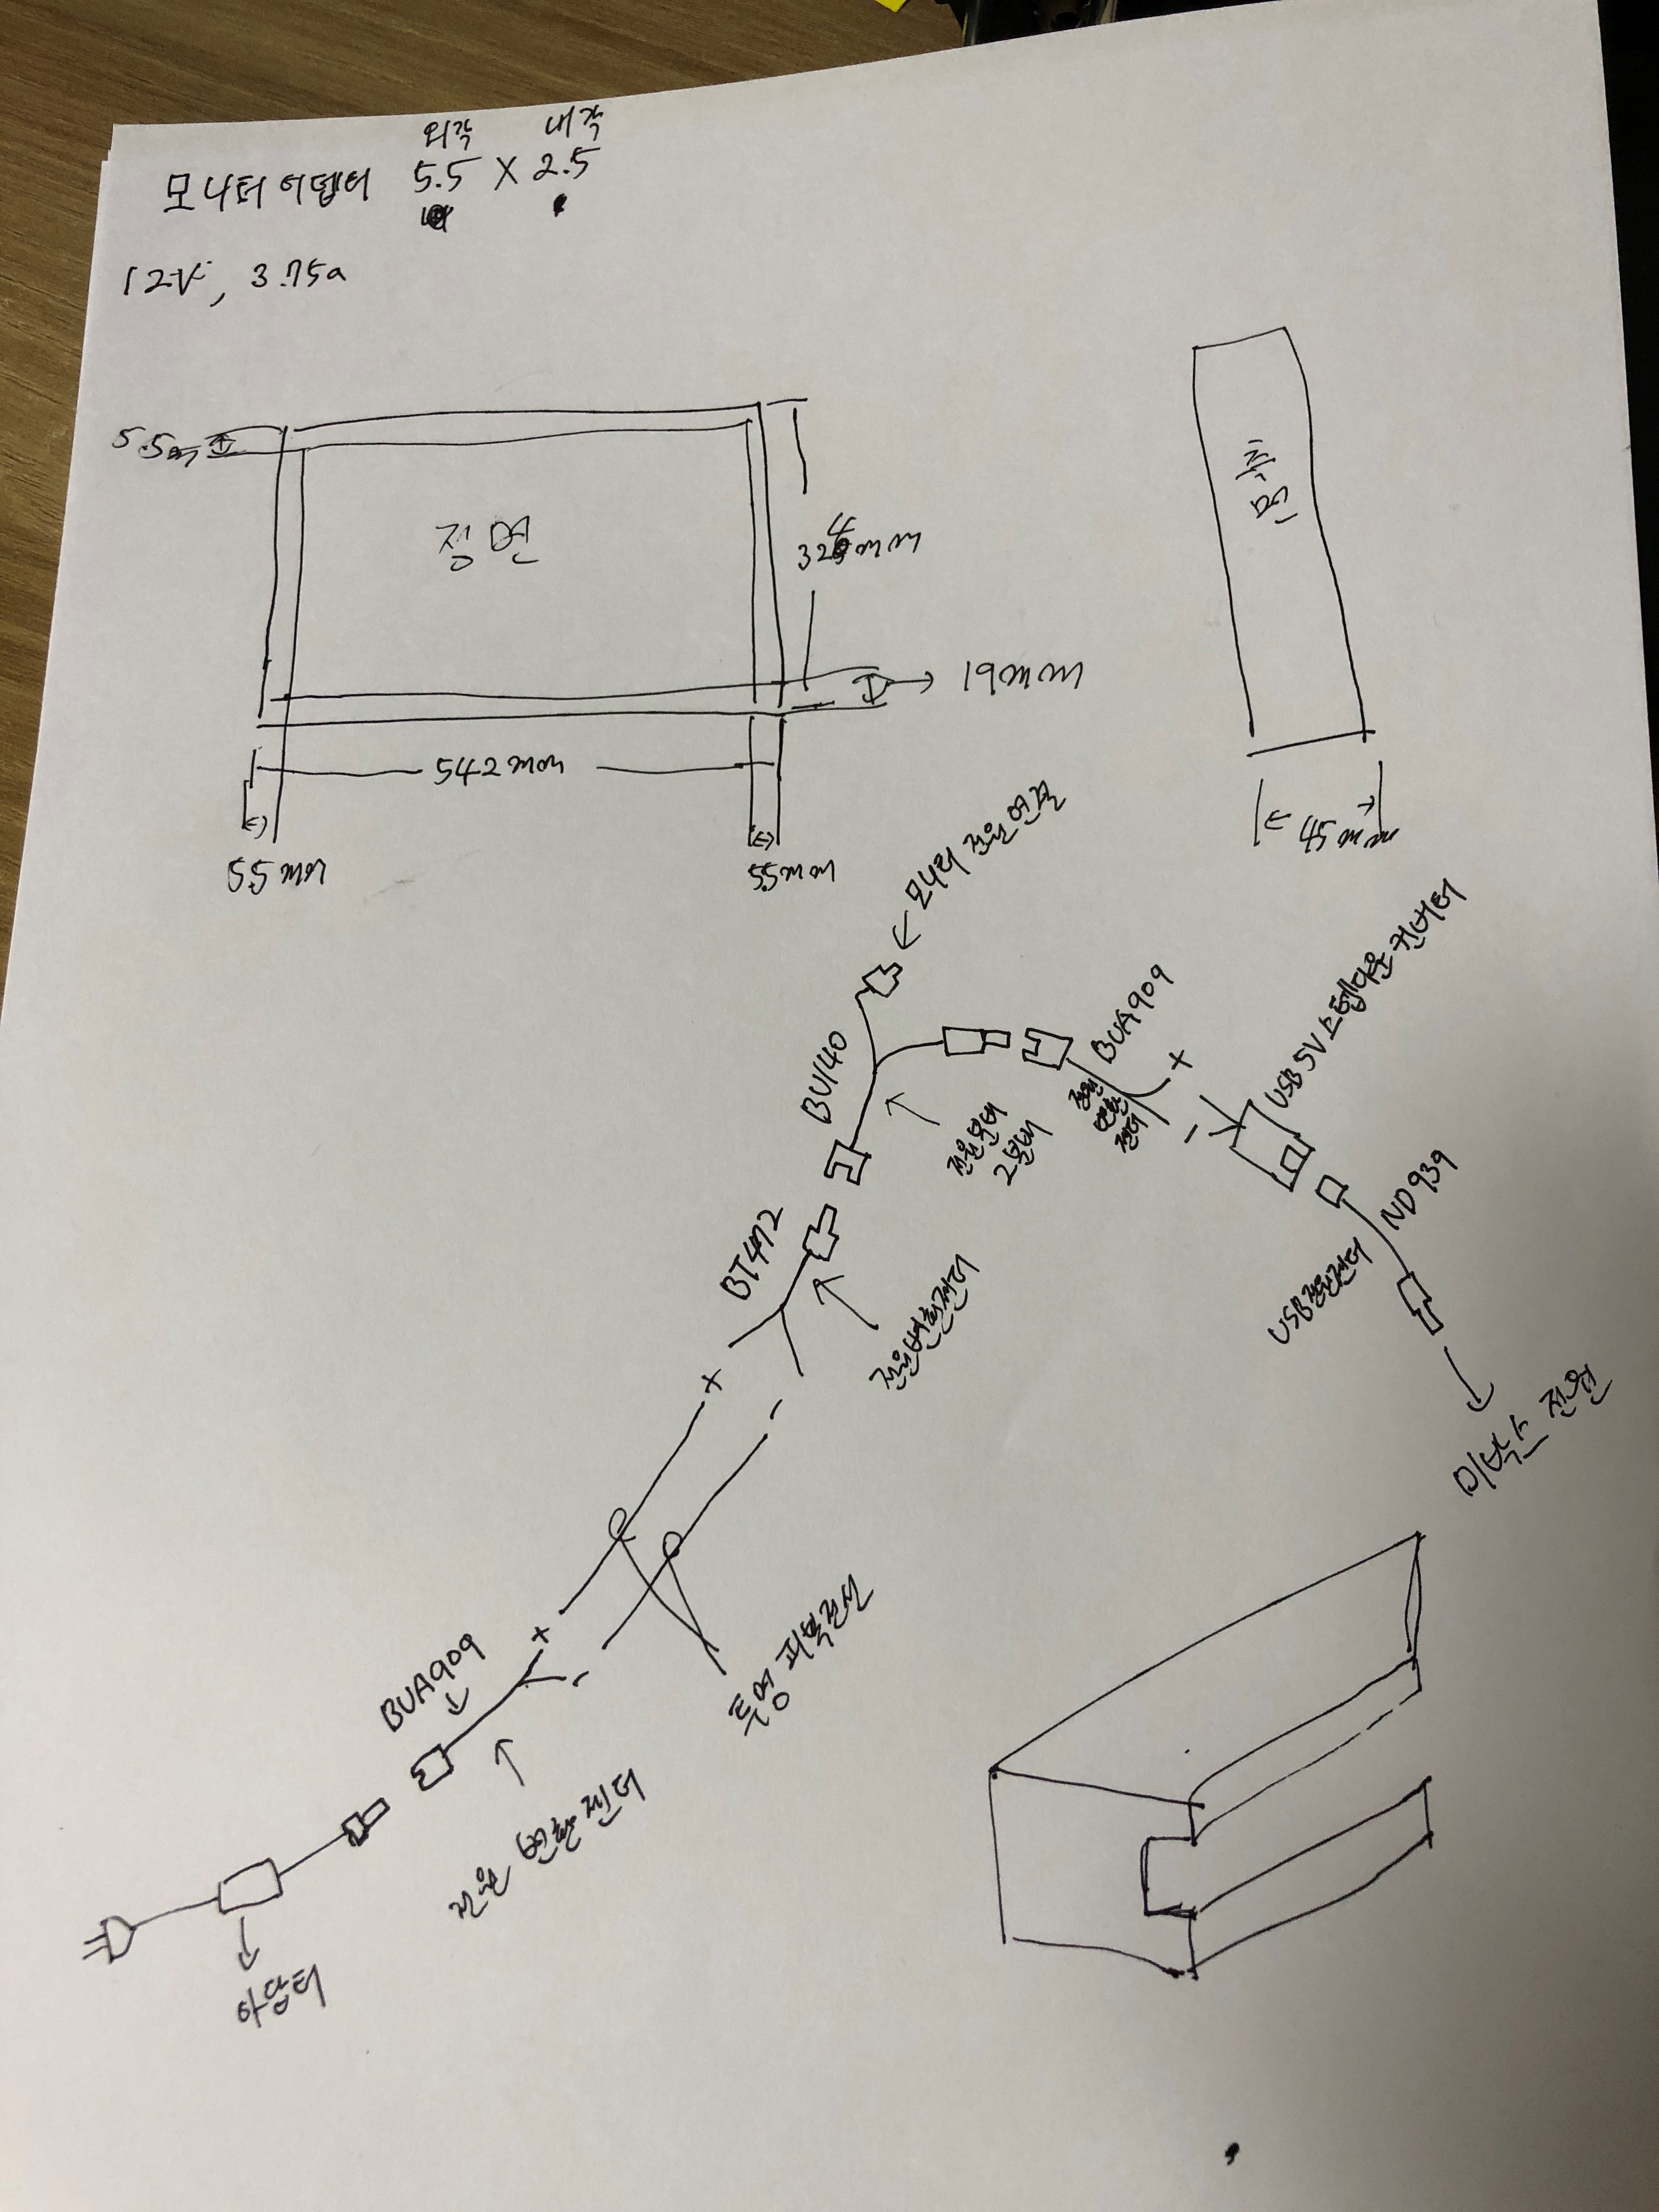 외각 내각
모니터 어뎁터 5.5 X 2.5
12V, 3.75a
5.5m
정면
324mm
19mm
542mm
5.5mm
5.5mm
측면
45mm
모니터 전원 연결
BU140
BUA909
+
-
전원분배
2분배
전원
변환
젠더
USB 5V 스텝다운 컨버터
ND939
USB전원젠더
미박스 전원
BT472
전원변환젠더
+
-
투명 피복전선
BUA909
+
-
전원 변환 젠더
아답터